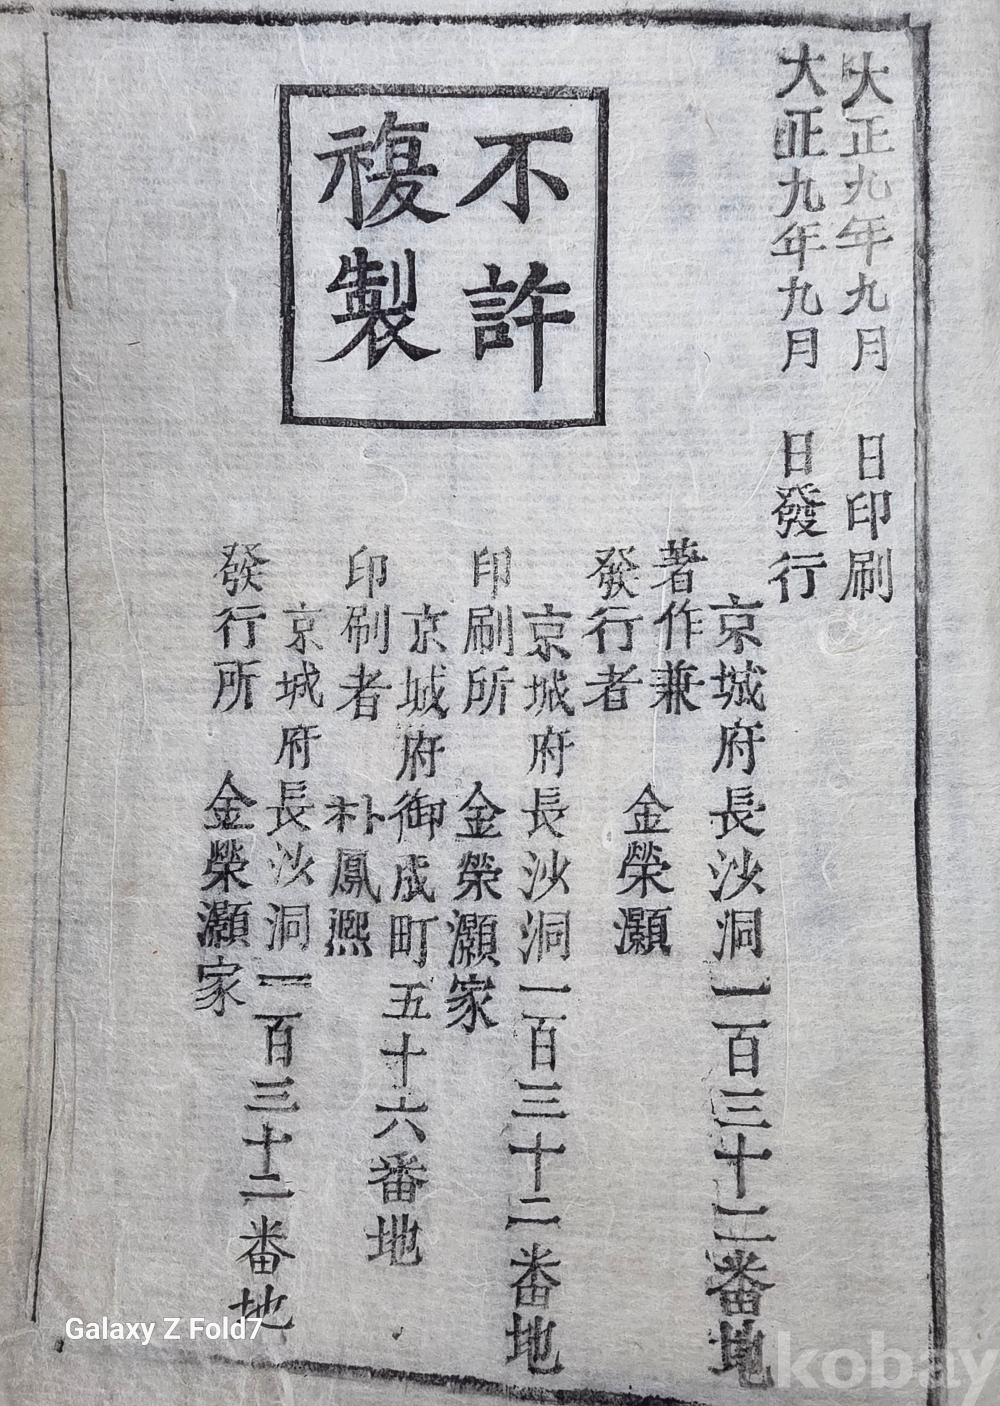 大正九年九月　日印刷
大正九年九月　日發行
不許
複製
京城府長沙洞一百三十二番地
著作兼
發行者
金榮灝
京城府長沙洞一百三十二番地
印刷所　金榮灝家
京城府御成町五十六番地
印刷者　朴鳳熙
京城府長沙洞一百三十二番地
發行所　金榮灝家
Galaxy Z Fold7
kobay